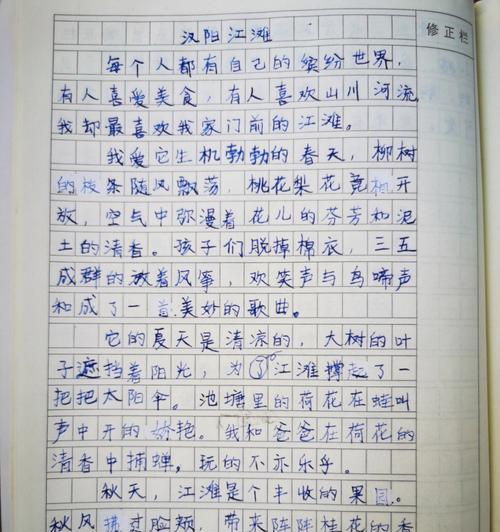 修正栏
汉阳江滩
每个人都有自己的缤纷世界,
有人喜爱美食,有人喜欢山川河流,
我却最喜欢我家门前的江滩。
我爱它生机勃勃的春天,柳树
的枝条随风飘荡,桃花梨花竞相开
放,空气中弥漫着花儿的芬芳和泥
土的清香。孩子们脱掉棉衣,三五
成群的放着风筝,欢笑声与鸟啼声
和成了一首美妙的歌曲。
它的夏天是清凉的,大树的叶
子遮挡着阳光,为江滩撑起了一
把把太阳伞。池塘里的荷花在蛙叫
声中开的娇艳。我和爸爸在荷花的
清香中捕蝉,玩的不亦乐乎。
秋天,江滩是个丰收的果园。
秋风拂过脸颊,带来阵阵桂花的香